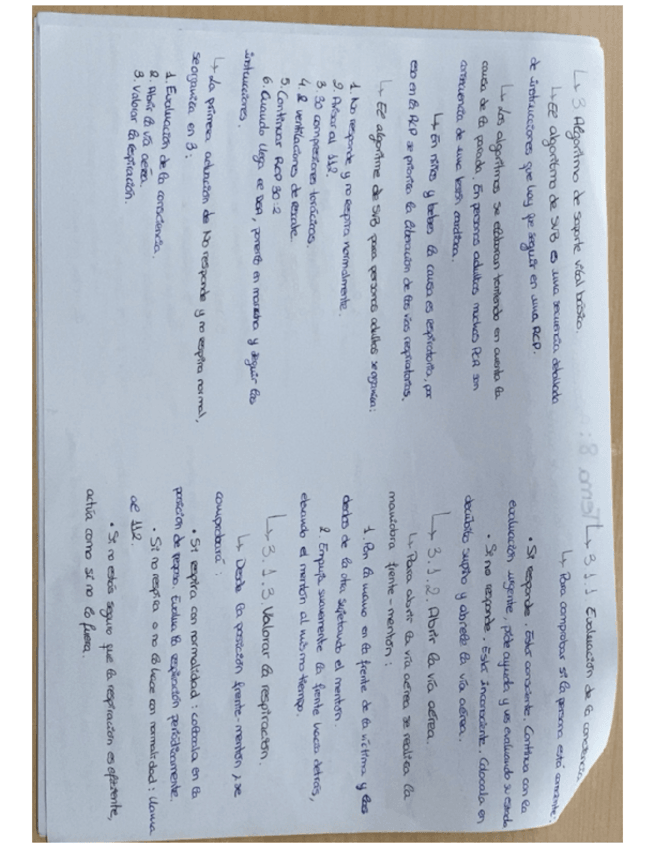 ↳ 3 Algoritmo de soporte vital básico.
↳ El algoritmo de SVB es una secuencia detallada
de instrucciones que hay que seguir en una RCP.
↳ Los algoritmos se elaboran teniendo en cuenta la
causa de la parada. En personas adultas muchas PCR son
consecuencia de una lesión cardíaca.
↳ En niños y bebés la causa es respiratoria, por
eso en la RCP se prioriza la liberación de las vías respiratorias.
↳ El algoritmo de SVB para personas adultas se organiza:
1. No responde y no respira normalmente.
2. Avisar al 112.
3. 30 compresiones torácicas.
4. 2 ventilaciones de rescate.
5. Continuar RCP 30:2
6. Cuando llega el DEA, ponerlo en marcha y seguir las
instrucciones.
↳ La primera actuación de No responde y no respira normal,
se organiza en 3:
1. Evaluación de la consciencia.
2. Abrir la vía aérea.
3. Valorar la respiración.
Tema 8:
↳ 3.1.1 Evaluación de la consciencia
↳ Para comprobar si la persona está consciente:
• Si responde. Está consciente. Continua con la
evaluación urgente, pide ayuda y ves evaluando su estado
• Si no responde. Está inconsciente. Colocala en
decúbito supino y abrele la vía aérea.
↳ 3.1.2. Abrir la vía aérea.
↳ Para abrir la vía aérea se realiza la
maniobra frente-mentón:
1. Pon la mano en la frente de la víctima y los
dedos de la otra sujetando el mentón.
2. Empuja suavemente la frente hacia detrás,
elevando el mentón al mismo tiempo.
↳ 3.1.3. Valorar la respiración.
↳ Desde la posición frente-mentón, se
comprobará:
• Si respira con normalidad: colócala en la
posición de seguridad. Evalua la respiración periódicamente.
• Si no respira o no lo hace con normalidad: llama
al 112.
• Si no estás seguro que la respiración es eficiente,
actúa como si no lo fuera.